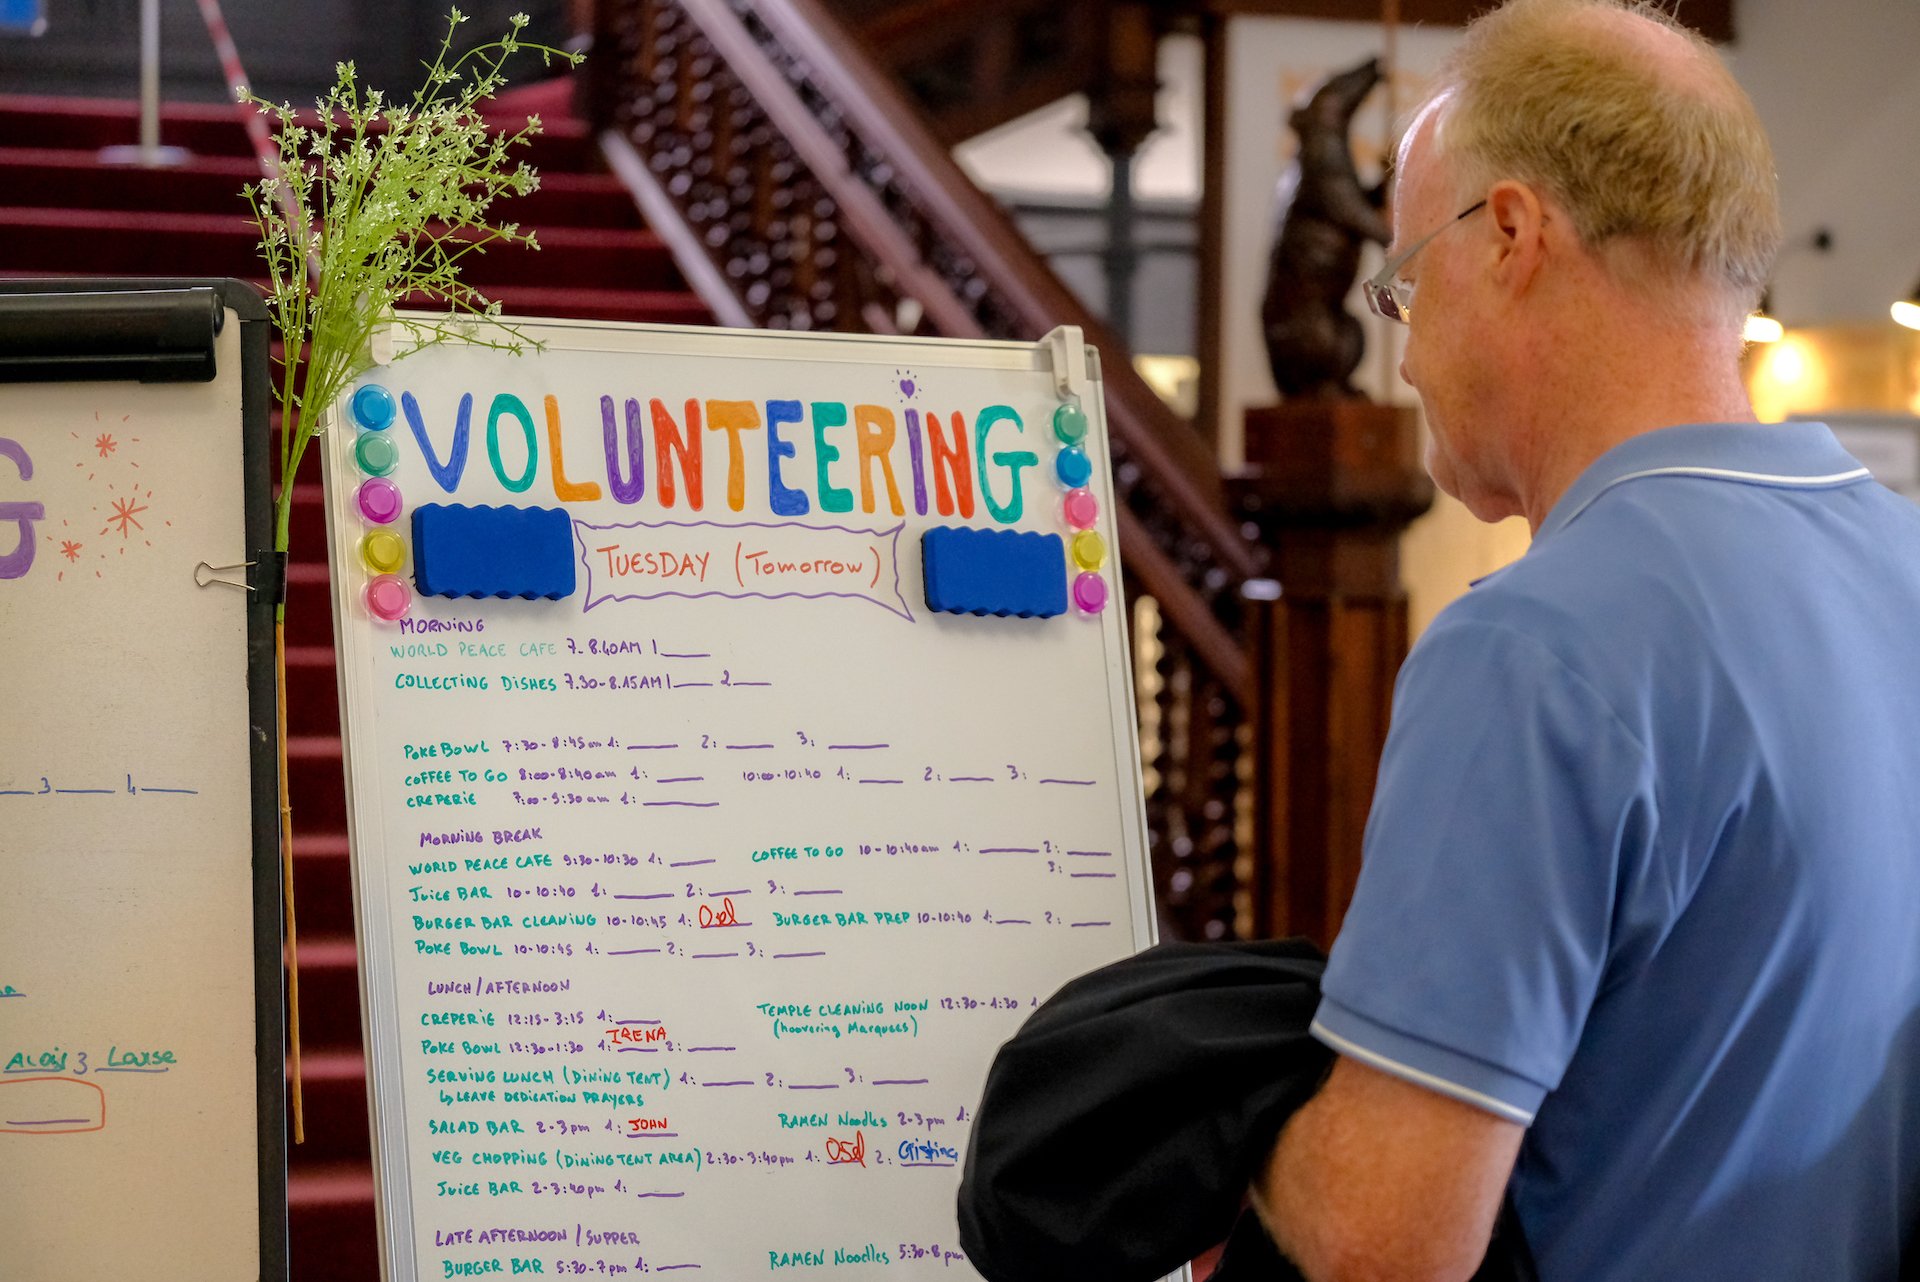 G
3 4
Alois 3 Louise
VOLUNTEERiNG
TUESDAY (Tomorrow)
MORNING
WORLD PEACE CAFE 7-8.40AM 1
COLLECTING DISHES 7.30-8.15AM 1 2
POKE BOWL 7:30-8:45am 1: 2: 3:
COFFEE TO GO 8:00-8:40am 1: 10:00-10:40 1: 2: 3:
CREPERIE 7:00-9:30am 1:
MORNING BREAK
WORLD PEACE CAFE 9:30-10:30 1: COFFEE TO GO 10-10:40am 1: 2:
3:
JUICE BAR 10-10:40 1: 2: 3:
BURGER BAR CLEANING 10-10:45 1: Osel BURGER BAR PREP 10-10:40 1: 2:
POKE BOWL 10-10:45 1: 2: 3:
LUNCH/AFTERNOON
CREPERIE 12:15-3:15 1: TEMPLE CLEANING NOON 12:30-1:30 1
(hoovering Marquees)
POKE BOWL 12:30-1:30 1: IRENA 2:
SERVING LUNCH (DINING TENT) 1: 2: 3:
↳ LEAVE DEDICATION PRAYERS
SALAD BAR 2-3pm 1: JOHN RAMEN Noodles 2-3pm 1:
VEG CHOPPING (DINING TENT AREA) 2:30-3:40pm 1: Osel 2: Cristina
JUICE BAR 2-3:40pm 1:
LATE AFTERNOON / SUPPER
BURGER BAR 5:30-7pm 1: RAMEN Noodles 5:30-8pm